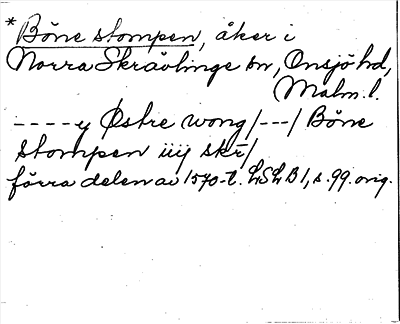 *Böne stompen, åker i
Norra Skrävlinge sn, Onsjö hd,
Malm. l.
- - - - y Østre wong/---/ Böne
stompen iiij skr̄/
förra delen av 1570-t. LSLB1, s. 99. orig.